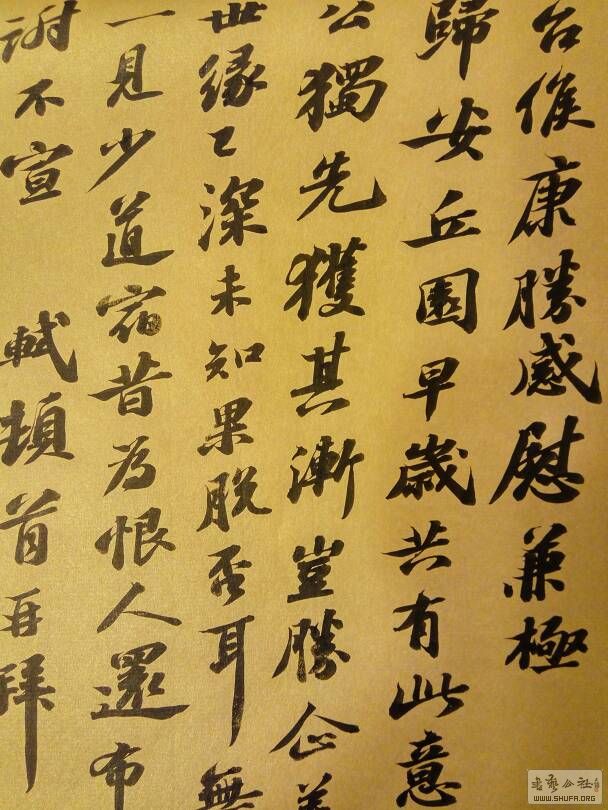 台候康勝感慰兼極
歸安丘園早歲共有此意
公獨先獲其漸豈勝企羡
世緣已深未知果脫否耳無
一見少道宿昔為恨人還布
謝不宣 軾頓首再拜
書藝公社
WWW.SHUFA.ORG